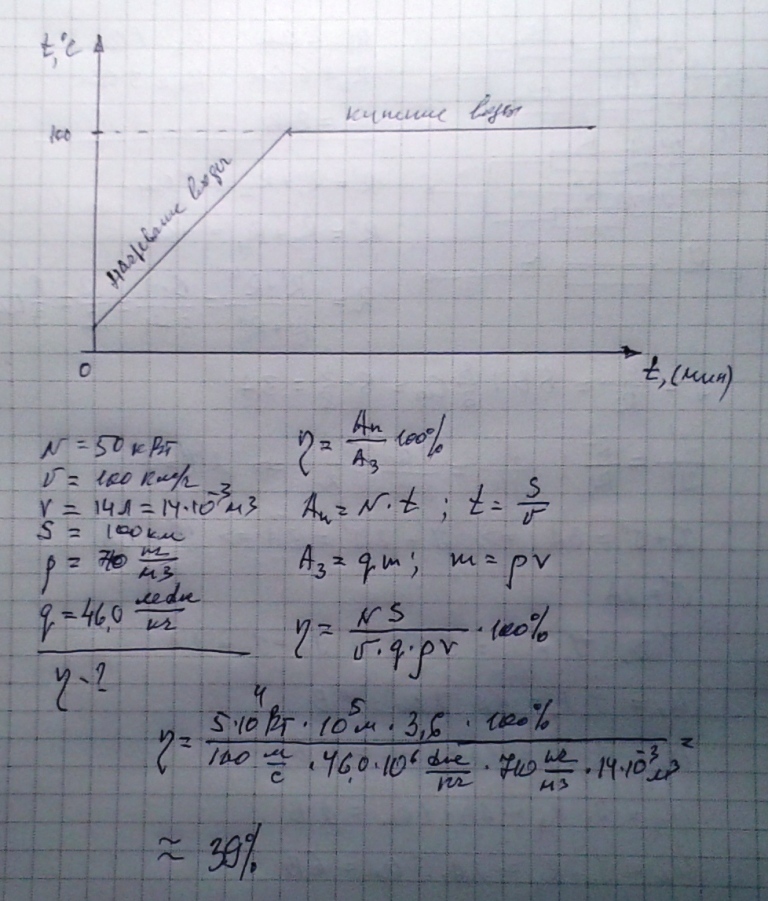 t,°C
100
кипение воды
Нагревание воды
0
t,(мин)
N = 50 кВт
v = 100 км/ч
V = 14л = 14·10⁻³ м3
S = 100 км
ρ = 710 кг/м3
q = 46,0 МДж/кг
η - ?
η = Aп/Aз 100%
Aп = N·t ; t = S/v
Aз = qm ; m = ρV
η = NS/(v·q·ρV) · 100%
η = (5·10⁴ Вт · 10⁵ м · 3,6 · 100%)/(100 м/с · 46,0·10⁶ Дж/кг · 710 кг/м3 · 14·10⁻³ м3) =
≈ 39%